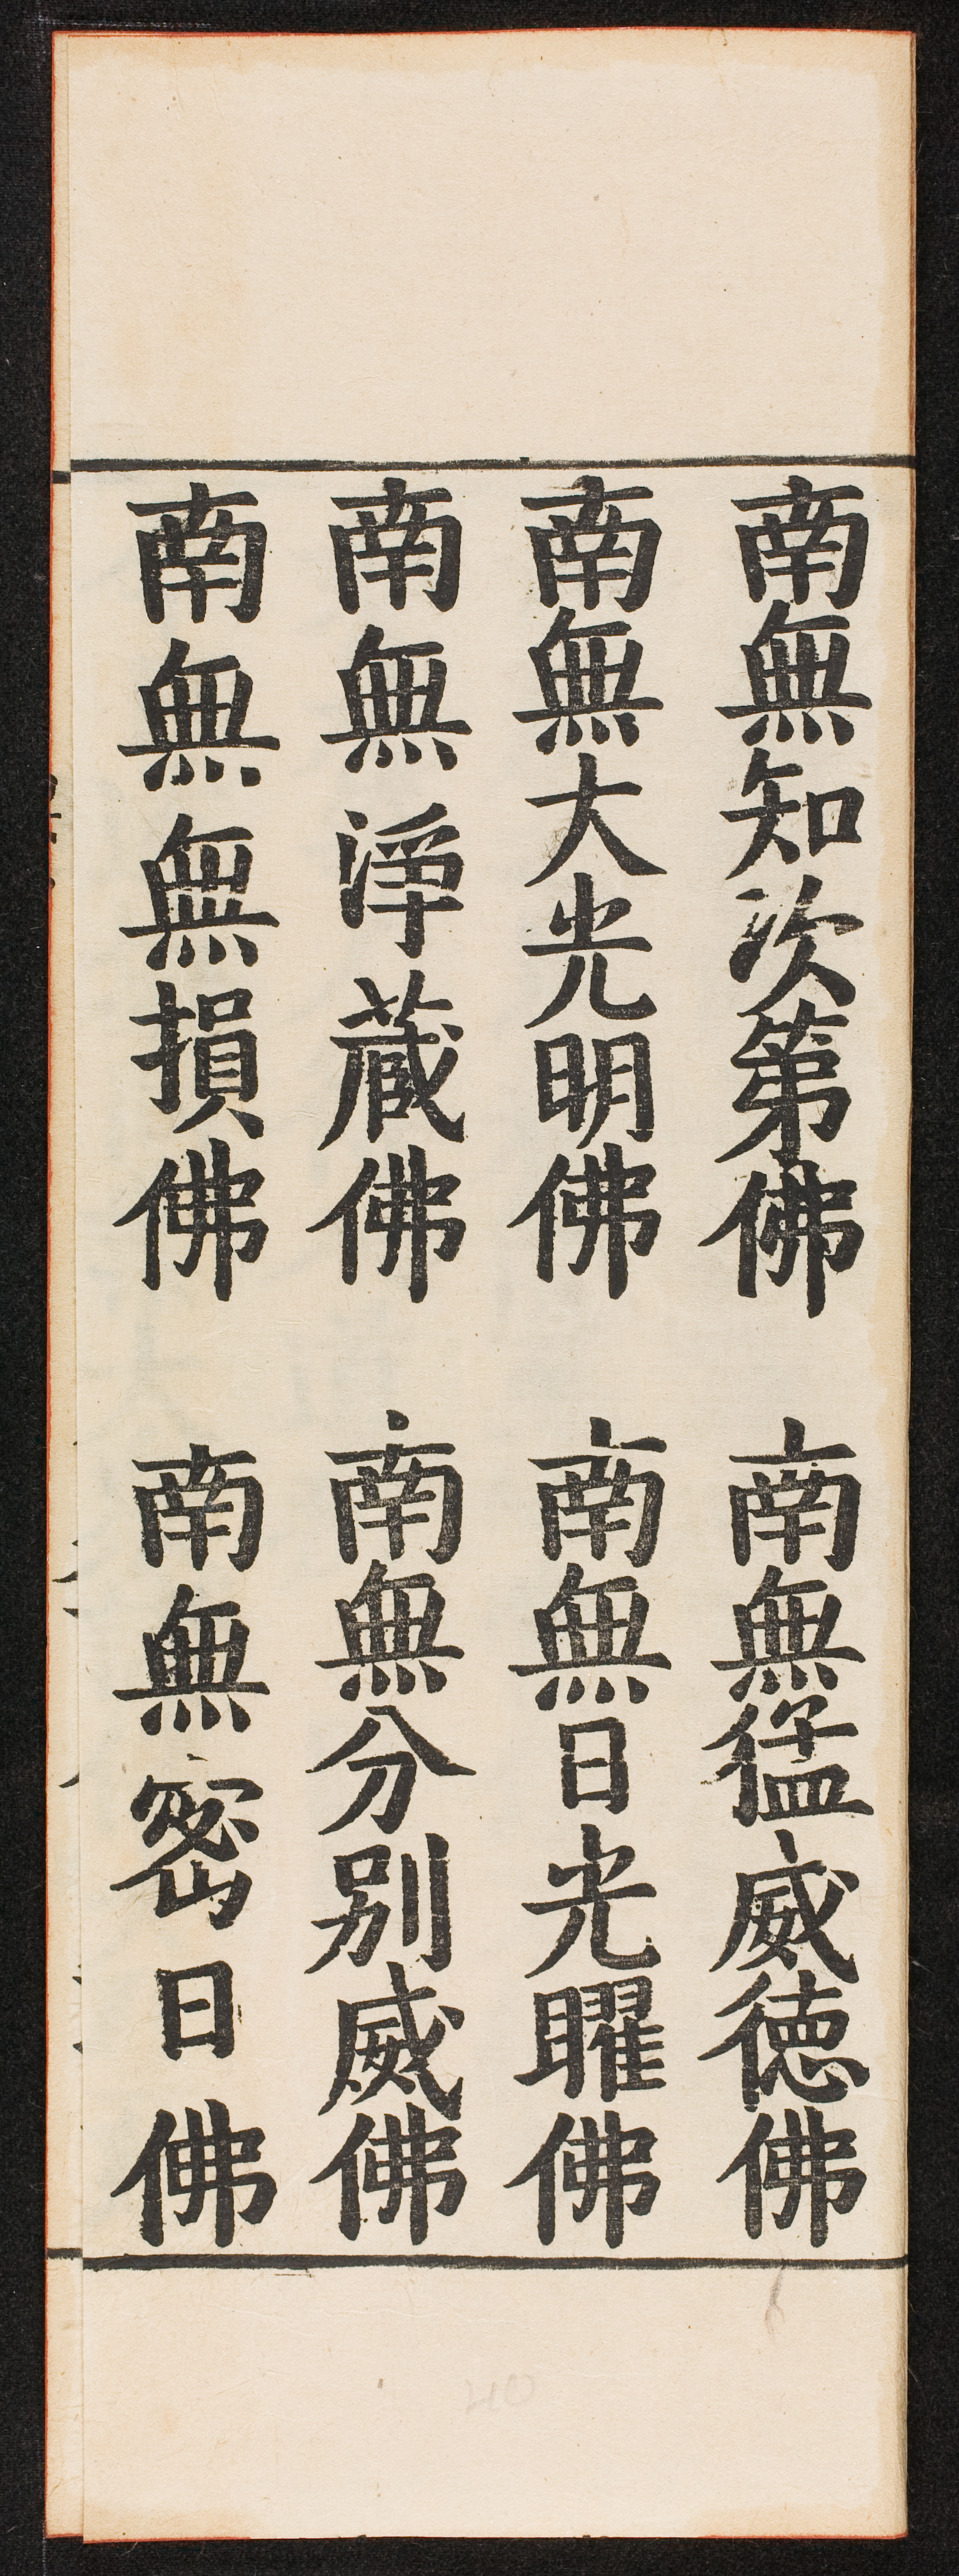 南無知次第佛　南無猛威徳佛
南無大光明佛　南無日光曜佛
南無淨蔵佛　南無分別威佛
南無無損佛　南無密日佛